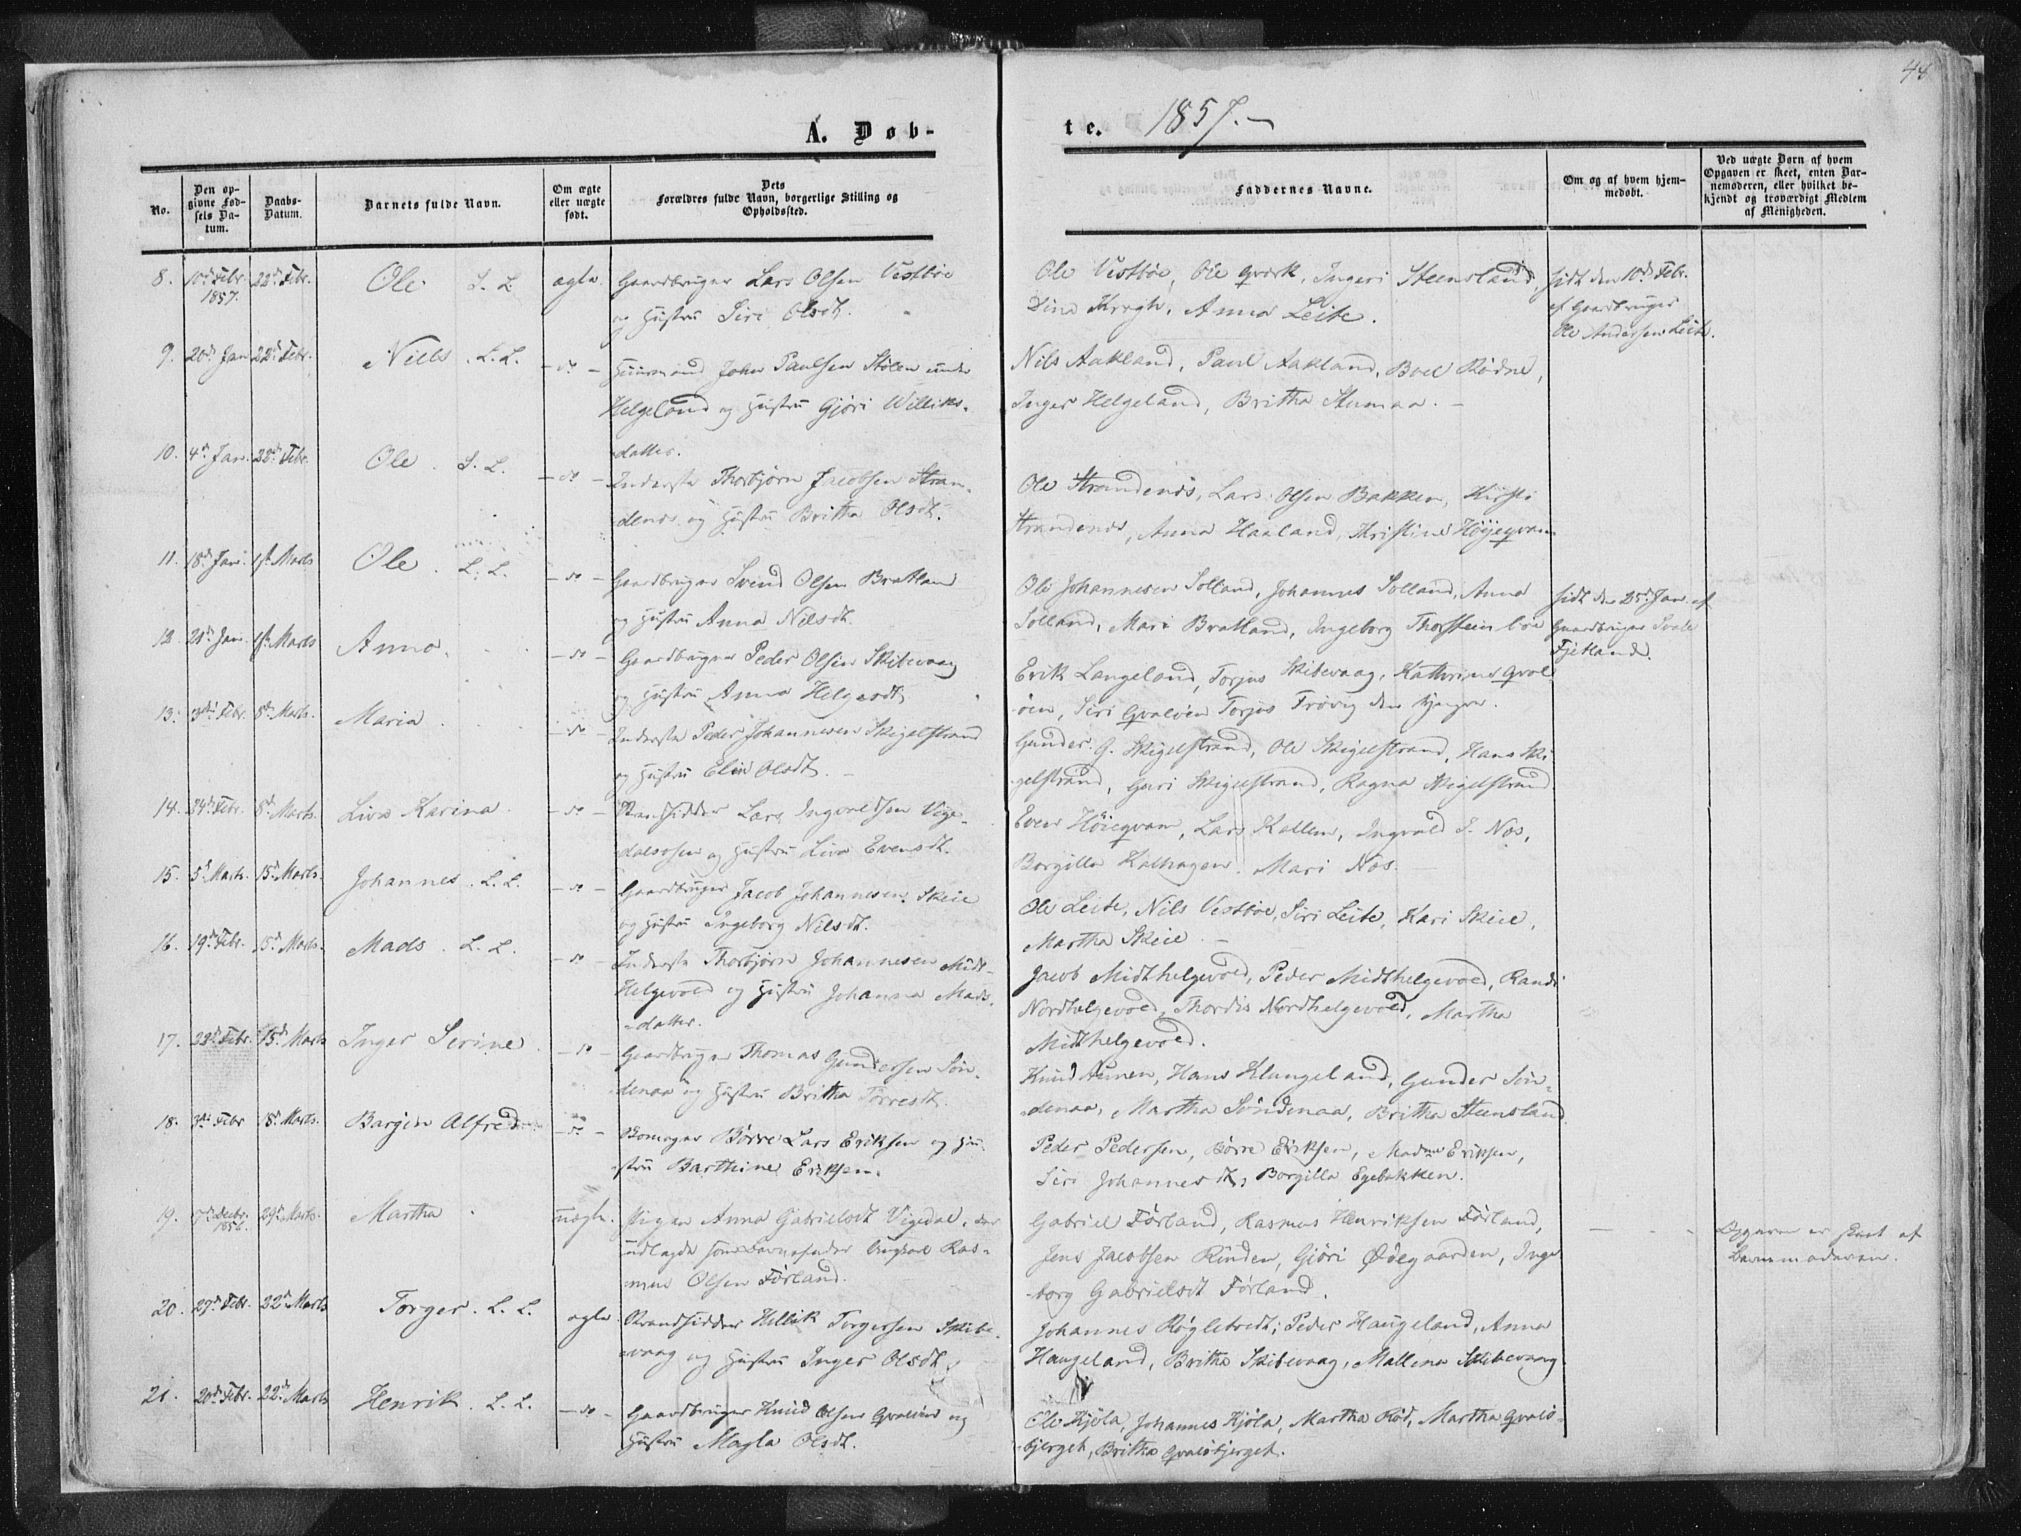 44
A. Døb-
te. 1857.
No.
Den op-
givne Fød-
sels Da-
tum.
Daabs-
Datum.
Barnets fulde Navn.
Om ægte
eller uægte
født.
Dets
Forældres fulde Navn, borgerlige Stilling og
Opholdssted.
Faddernes Navne.
Om og af hvem hjem-
medøbt.
Ved uægte Børn af hvem
Opgaven er skeet, enten Bar-
nemoderen, eller hvilket be-
kjendt og troværdigt Medlem
af Menigheden.
8. 10de Febr. 22de Febr. Ole L. L. ægte. Gaardbruger Lars Olsen Vestbøe
1857.
og Hustru Siri Olsdt.
Ole Vestbøe, Ole Qværk, Ingeri Steensland,
Dina Kragh, Anna Leite.
hjdt den 10de Febr.
af Gaardbruger
Ole Andersen Leite.
9. 20de Jan 22de Febr. Niels. L. L. - do - Huusmand John Paulsen Stølen under
Helgeland og Hustru Gjøri Williks-
datter.
Nils Aakland, Paul Aakland, Boel Rødne,
Inger Helgeland, Britha Stumaa. -
10. 4de Jan. 22de Febr. Ole. L. L. - do - Inderste Thorbjørn Jacobsen Stran-
denes og Hustru Britha Olsdt.
Ole Strandenes, Lars Olsen Bakken, Kirsti
Strandenes, Anna Haaland, Kristine Høyeqvam
11. 18de Jan. 1ste Marts Ole. L. L. - do - Gaardbruger Svend Olsen Bratland
og Hustru Anna Nilsdt.
Ole Johannesen Solland, Johannes Solland, Anna
Solland, Mari Bratland, Ingeborg Thorsteinbøe
hjdt den 25de Jan. af
Gaardbruger
Fjetland.
12. 21de Jan. 1ste Marts Anna. - do - Gaardbruger Peder Olsen Skibevaag
og Hustru Anna Helgesdt.
Erik Langeland, Torjus Skibevaag, Kathrine Qval
øen, Siri Qvaløen Torjus Frøvig den yngre.
13. 3die Febr. 8de Marts. Maria. - do - Inderste Peder Johannesen Skigelstrand
og Hustru Elin Olsdt. -
Gunder G. Skigelstrand, Ole Skigelstrand, Hans Ski
gelstrand, Guri Skigelstrand, Ragna Skigelstrand.
14. 24de Febr. 8de Marts. Liva Karina. - do - Strandsidder Lars Ingvaldsen Vige-
dalsosen og Hustru Liva Evensdt.
Even Høieqvam, Lars Kallem, Ingvald I. Nos,
Borgilla Kalhagen. Mari Nos. -
15. 5te Marts. 15de Marts. Johannes. L. L. - do - Gaardbruger Jacob Johannesen Skeie
og Hustru Ingeborg Nilsdt.
Ole Leite, Nils Vestbøe, Siri Leite, Kari Skeie,
Martha Skeie. -
16. 19de Febr. 15de Marts. Mads. L. L. - do - Inderste Thorbjørn Johannesen Midt-
Helgevold og Hustru Johanna Mads-
datter.
Jacob Midthelgevold, Peder Midthelgevold, Randi
Nordhelgevold, Thordis Nordhelgevold, Martha
Midthelgevold.
17. 22de Febr. 15de Marts Inger Serine. - do - Gaardbruger Thomas Gundersen Søn-
denaa og Hustru Britha Torresdt.
Knud Aunen, Hans Klungeland, Gunder Søn-
denaa, Martha Søndenaa, Britha Steensland.
18. 3die Febr. 18de Marts. Børgein Alfred - do - Bomager Børre Lars Eriksen og Hu-
stru Barthine Eriksen.
Peder Pedersen, Børre Eriksen, Madme Eriksen,
Siri Johannesdt, Borgilla Egebakken.
19. 7de Decbr. 29de Marts. Martha uægte. Pigen Anna Gabrielsdt Vigedal, der
1856.
udlagde som Barnefader Ungkarl Ras-
mus Olsen Førland.
Gabriel Førland, Rasmus Henriksen Førland,
Jens Jacobsen Rinden, Gjøri Ødegaarden, Inge
borg Gabrielsdt Førland.
Opgaven er skeet af
Barnemoderen.
20. 27de Febr. 22de Marts Torger. L. L. ægte. Strandsidder Hellik Torgersen Skibe-
vaag og Hustru Inger Olsdt.
Johannes Røgletvedt, Peder Haugeland, Anna
Haugeland, Britha Skibevaag, Mallena Skibevaag
21. 20de Febr. 22de Marts Henrik. L. L. - do - Gaardbruger Knud Olsen Qvaløen og
Hustru Magla Olsdt.
Ole Kjøla, Johannes Kjøla, Martha Rød, Martha Qvalø-
bjerget, Britha Qvaløbjerget.